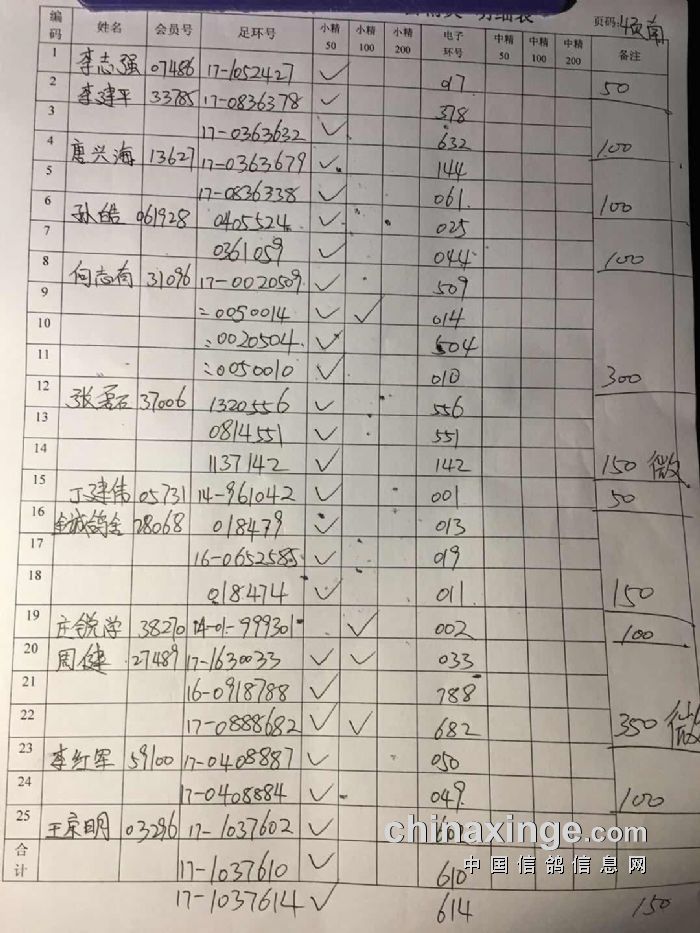 明细表 页码:
编码 姓名 会员号 足环号 小精50 小精100 小精200 电子环号 中精50 中精100 中精200 备注
1 李志强 07486 17-1052427 ✓ 017 50
2 李建平 33785 17-0836378 ✓ 378
3 17-0363632 ✓ 632 100
4 唐兴海 13627 17-0363679 ✓ 144
5 17-0836338 ✓ 061 100
6 孙皓 061928 0405524 ✓ 025
7 0361059 ✓ 044 100
8 何志有 31096 17-0020509 ✓ 509
9 0050014 ✓ ✓ 014
10 0020504 ✓ 504
11 0050010 ✓ 010 300
12 张磊石 37006 1320556 ✓ 556
13 0814551 ✓ 551
14 1137142 ✓ 142 150 微
15 丁建伟 05731 14-961042 ✓ 001 50
16 28068 018479 ✓ 013
17 16-0652585 ✓ 019
18 018474 ✓ 011 150
19 庄锐学 38270 14-01-999301 ✓ 002 100
20 周健 27489 17-1630033 ✓ ✓ 033
21 16-0918788 ✓ 788
22 17-0888682 ✓ ✓ 682 350 微
23 李红军 59100 17-0408887 ✓ 050
24 17-0408884 ✓ 049 100
25 王京明 03296 17-1037602 ✓
chinaxinge.com
合计 17-1037610 ✓ 610
中国信鸽信息网
17-1037614 ✓ 614 150